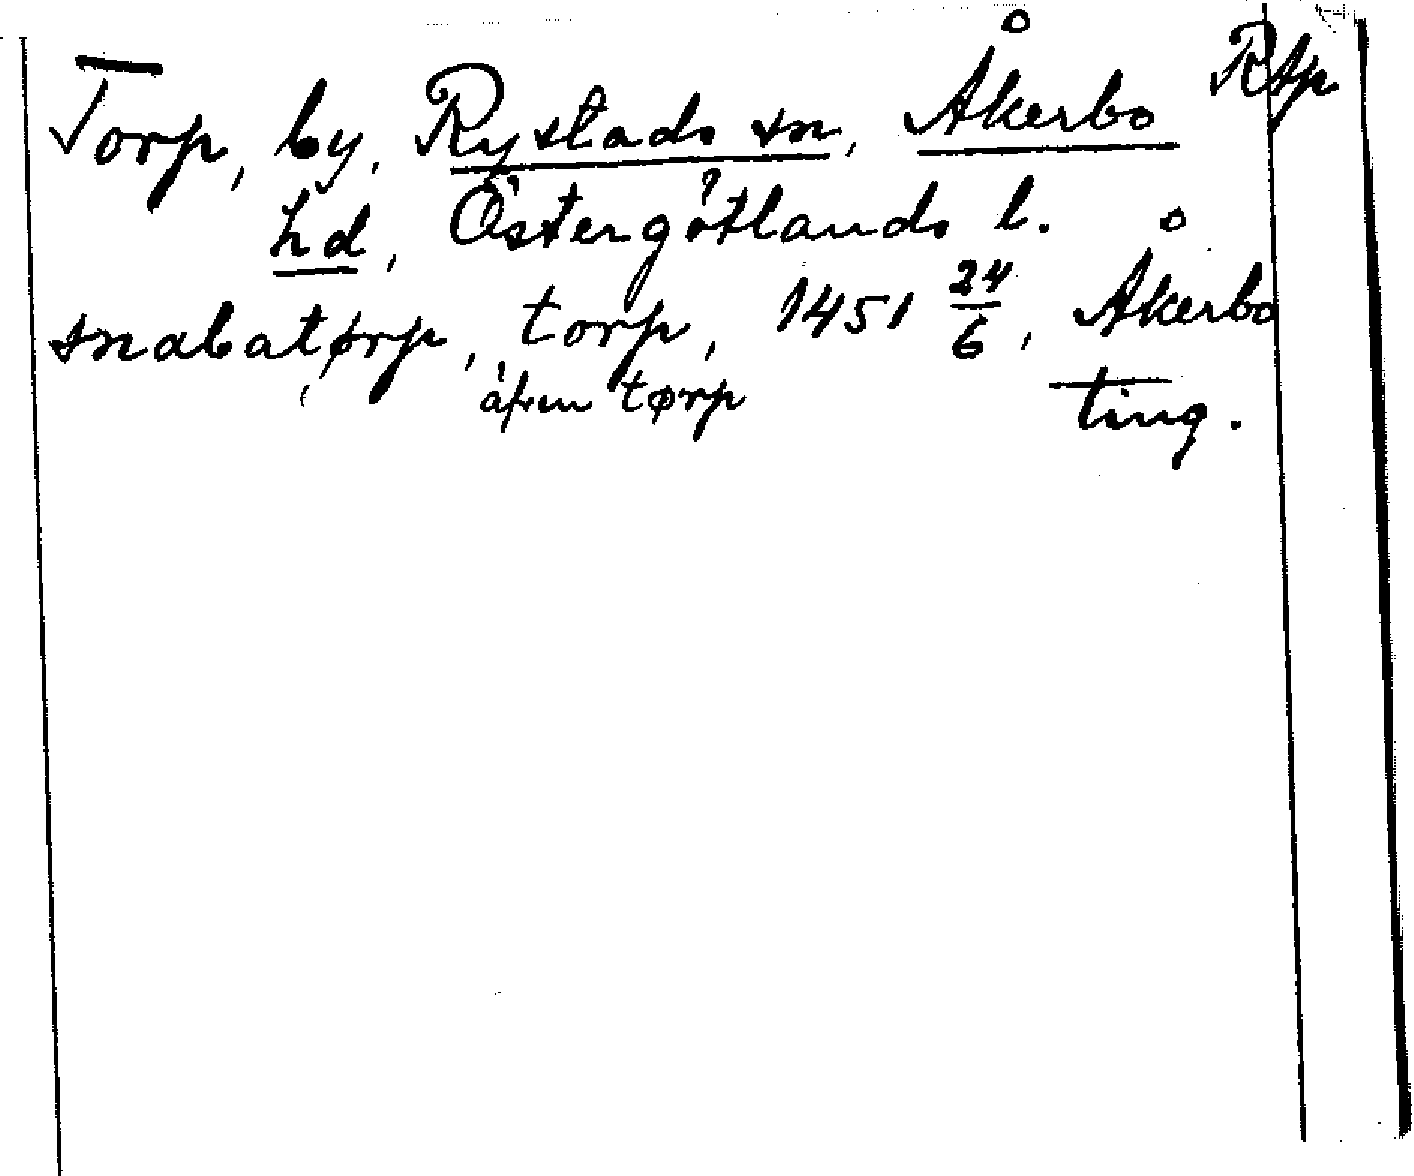 Rtp
Torp, by, Rystads sn, Åkerbo
hd, Östergötlands l.
snabatørp, torp, 1451 24/6, Åkerbo
äfven tørp ting.